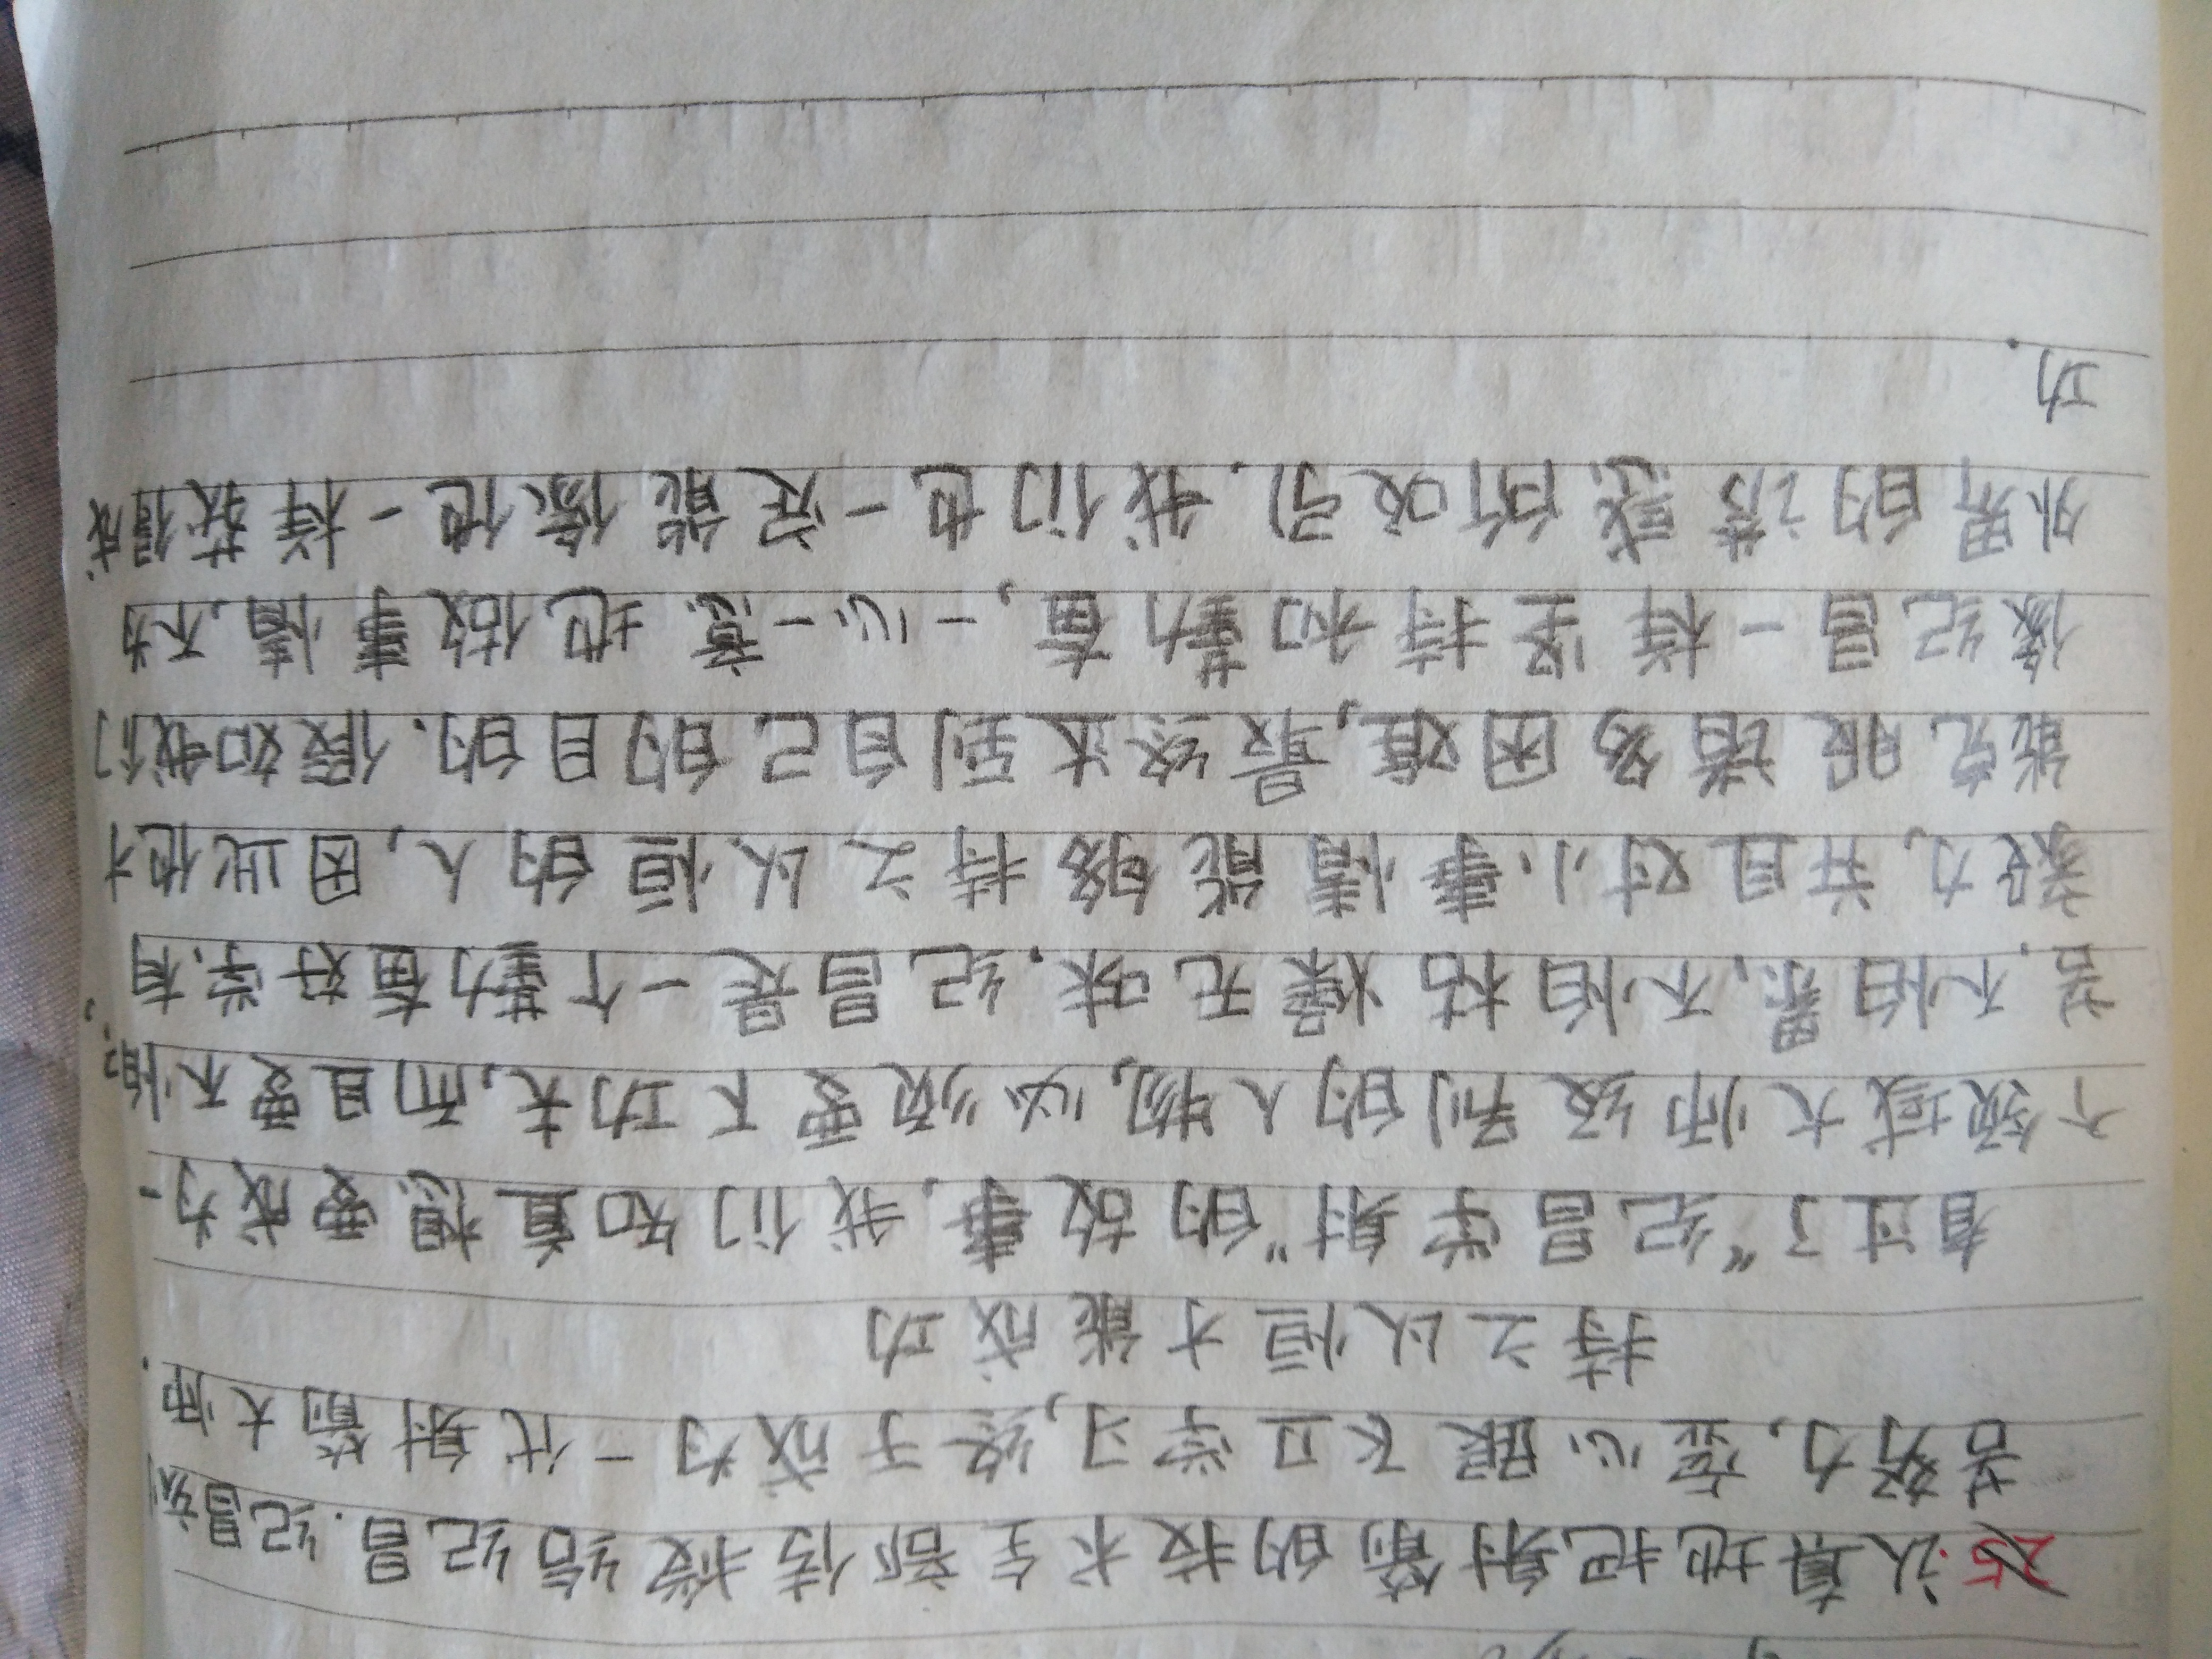 25.认真地把射箭的技术全部传授给纪昌.纪昌刻
苦努力,虚心跟飞卫学习,终于成为一代射箭大师.
持之以恒才能成功
看过了"纪昌学射"的故事,我们知直想要成为一
个领域大师级别的人物,必须要下功夫,而且要不怕
苦,不怕累,不怕枯燥无味.纪昌是一个勤奋好学,有
毅力,并且对小事情能够持之以恒的人,因此他才
能克服诸多困难,最终达到自己的目的.假如我们
像纪昌一样坚持和勤奋,一心一意地做事情,不为
外界的诱惑所吸引.我们也一定能像他一样获得成
功.